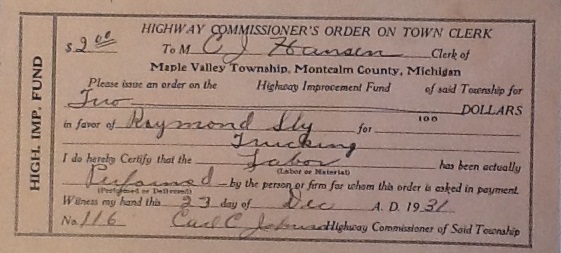 HIGHWAY COMMISSIONER'S ORDER ON TOWN CLERK
$ 2.00 To M C J Hansen Clerk of
Maple Valley Township, Montcalm County, Michigan
Please issue an order on the Highway Improvement Fund of said Township for
Two 100 DOLLARS
in favor of Raymond Sly for
Trucking
I do hereby Certify that the Labor has been actually
(Labor or Material)
Performed by the person or firm for whom this order is asked in payment.
(Performed or Delivered)
Witness my hand this 23 day of Dec A. D. 1931
No. 116 Carl C Johnson Highway Commissioner of Said Township
HIGH. IMP. FUND